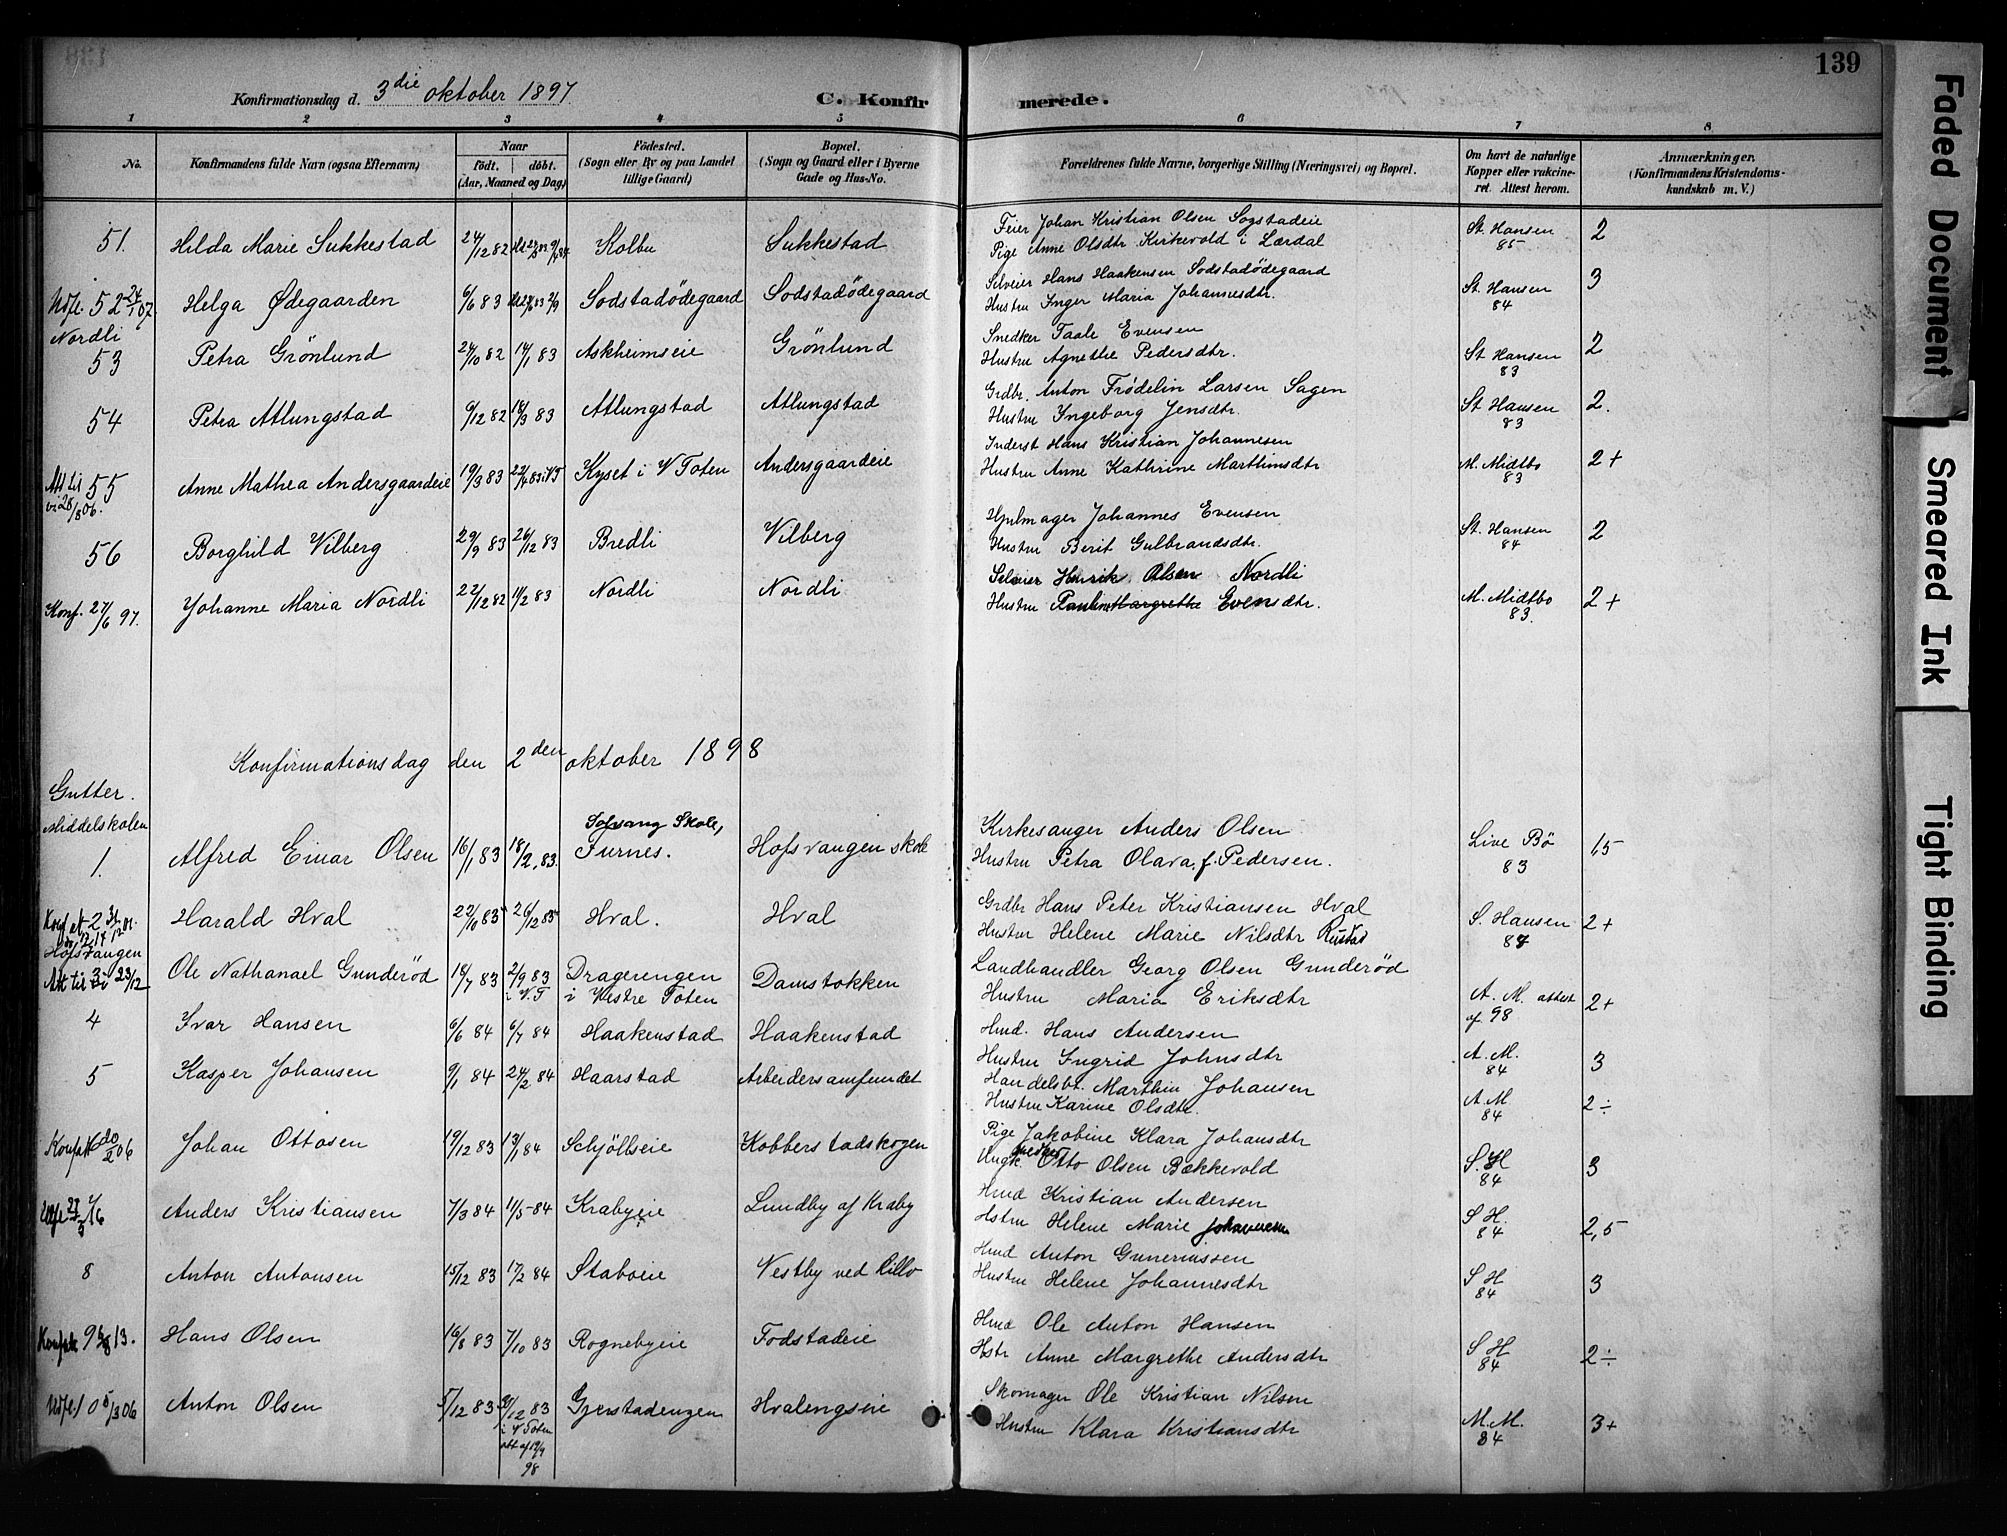 139
Konfirmationsdag d. 3die oktober 1897 C. Konfir merede.
1 2 3 4 5 6 7 8
No.
Konfirmandens fulde Navn (ogsaa Efternavn)
Naar
født. døbt.
(Aar, Maaned og Dag)
Fødested.
(Sogn eller By og paa Landet
tillige Gaard)
Bopæl.
(Sogn og Gaard eller i Byerne
Gade og Hus-No.
Forældrenes fulde Navne, borgerlige Stilling (Næringsvei) og Bopæl.
Om havt de naturlige
Kopper eller vakcine-
ret. Attest herom.
Anmærkninger.
(Konfirmandens Kristendoms-
kundskab m. V.)
51. Hilda Marie Sukkestad 24/12 82 Kolbu Sukkestad
Feier Johan Kristian Olsen Sogstadeie
Pige Anne Olsdtr Kirkevold i Lærdal
St. Hansen 85 2
52 Helga Ødegaarden 6/6 83 Sodstadödegaard Sodstadödegaard
Selveier Hans Haakensen Sodstadödegaard
Hustru Inger Maria Johannesdtr.
St. Hansen 84 3
Nordli
53 Petra Grönlund 24/10 82 14/1 83 Askheimseie Grönlund
Snedker Taale Evensen
Hustru Agnethe Pedersdtr.
St Hansen 83 2
54 Petra Atlungstad 9/12 82 18/3 83 Atlungstad Atlungstad
Grdbr. Anton Frödelin Larsen Sagen
Hustru Ingeborg Jensdtr.
St Hansen 83 2.
55 Anne Mathea Andersgaardeie 19/3 83 22/4 83 i VT Kyset i V Toten Andersgaardeie
Inderst Hans Kristian Johannesen
Hustru Anne Kathrine Marthinsdtr
M. Midtbo 83 2+
28/8 06.
56 Borghild Vilberg 29/9 83 26/12 83 Bredli Vilberg
Hjulmager Johannes Evensen
Hustru Berit Gulbrandsdtr.
St. Hansen 84 2
Konf. 27/6 97. Johanne Maria Nordli 22/12 82 11/2 83 Nordli Nordli
Selveier Henrik Olsen Nordli
Hustru Pauline Margrethe Evensdtr.
M. Midtbo 83. 2+
Konfirmationsdag den 2den oktober 1898
Gutter.
Middelskolen
1. Alfred Einar Olsen 16/1 83 18/2 83. Solvang Skole, Furnes. Hofsvangen skole
Kirkesanger Anders Olsen
Hustru Petra Olava, f. Pedersen.
Live Bø 83 1,5
2 Harald Hval 22/10 83 26/12 83 Hval. Hval
Grdbr Hans Peter Kristiansen Hval
Hustru Helene Marie Nilsdtr Rustad
S. Hansen 84 2+
Hofsvangen
3 Ole Nathanael Gunderød 18/7 83 2/9 83 i V. T Dragerengen i Vestre Toten Damstokken
Landhandler Georg Olsen Gunderød
Hustru Maria Eriksdtr
A. M. attest af 98 2+
4 Ivar Hansen 6/6 84 6/7 84 Haakenstad Haakenstad
Hmd. Hans Andersen
Hustru Ingrid Johnsdtr
A. M. 84 3
5 Kasper Johansen 9/1 84 24/2 84 Haarstad Arbeidersamfundet
Handelsbt. Marthin Johansen
Hustru Karine Olsdtr.
A. M 84 2÷
Johan Ottosen 19/12 83 13/1 84 Schjöllseie Kobberstadskogen
Pige Jakobine Klara Johansdtr
Ungk. Otto Olsen Bækkevold
S. H 84 3
Anders Kristiansen 7/3 84 11/5 84 Krabyeie Lundby af Kraby
Hmd Kristian Andersen
Hstru Helene Marie Johannesen
S H. 84 2,5
8 Anton Antonsen 15/12 83 17/2 84 Staboeie Vestby ved Lillo
Hmd Anton Gunerussen
Hustru Helene Johannesdtr
S H 84 3
9 Hans Olsen 16/8 83 7/10 83 Rognebyeie Fodstadeie
Hmd Ole Anton Hansen
Hstr Anne Margrethe Andersdtr
S H 84 2÷
10 Anton Olsen 5/12 83 31/12 83 Gjerstadengen Hvalengseie
Skomager Ole Kristian Nilsen
Hustru Klara Kristiansdtr
M. M. 84 3+
i V Toten
98
Faded Document
Smeared Ink
Tight Binding